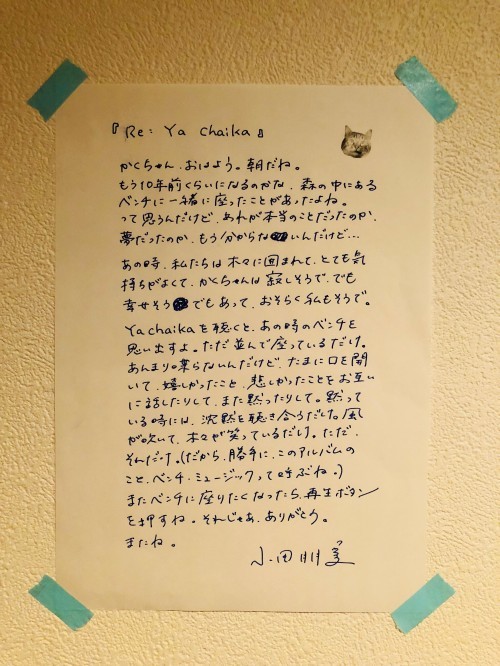 『Re: Ya Chaika』
かくちゃん、おはよう。朝だね。
もう10年前くらいになるのかな、森の中にある
ベンチに一緒に座ったことがあったよね。
って思うんだけど、あれが本当のことだったのか、
夢だったのか、もう分からないんだけど…
あの時、私たちは木々に囲まれて、とても気
持ちがよくて、かくちゃんは寂しそうで、でも
幸せそうでもあって、おそらく私もそうで。
Ya chaikaを聴くと、あの時のベンチを
思い出すよ。ただ並んで座っているだけ。
あんまり喋らないんだけど、たまに口を開
いて、嬉しかったこと、悲しかったことをお互い
に話したりして、また黙ったりして。黙って
いる時には、沈黙を聴き合うだけ。風
が吹いて、木々が笑っているだけ。ただ、
それだけ。(だから、勝手に、このアルバムの
こと、ベンチ・ミュージックって呼ぶね。)
またベンチに座りたくなったら、再生ボタン
を押すね。それじゃあ、ありがとう。
またね。
小田朋美